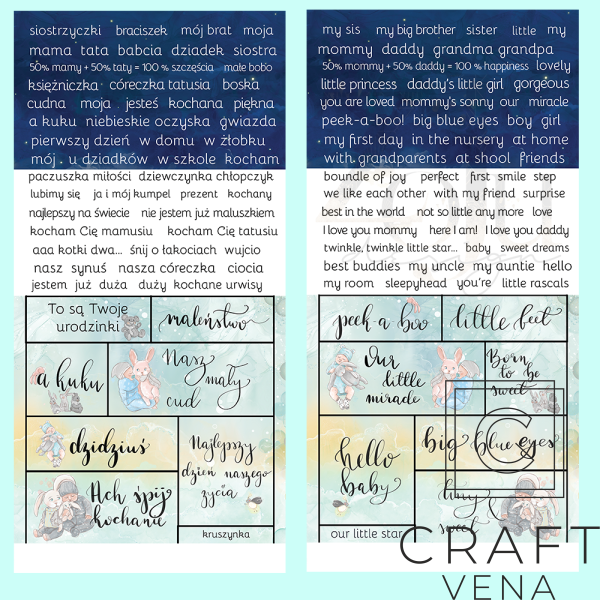 siostrzyczki braciszek mój brat moja
mama tata babcia dziadek siostra
50% mamy + 50% taty = 100 % szczęścia małe bobo
księżniczka córeczka tatusia boska
cudna moja jesteś kochana piękna
a kuku niebieskie oczyska gwiazda
pierwszy dzień w domu w żłobku
mój u dziadków w szkole kocham
paczuszka miłości dziewczynka chłopczyk
lubimy się ja i mój kumpel prezent kochany
najlepszy na świecie nie jestem już maluszkiem
kocham Cię mamusiu kocham Cię tatusiu
aaa kotki dwa... śnij o łakociach wujcio
nasz synuś nasza córeczka ciocia
jestem już duża duży kochane urwisy
To są Twoje
urodzinki
maleństwo
a kuku
Nasz
mały
cud
dzidziuś
Najlepszy
dzień naszego
życia
Ach śpij
kochanie
kruszynka
my sis my big brother sister little my
mommy daddy grandma grandpa
50% mommy + 50% daddy = 100 % happiness lovely
little princess daddy's little girl gorgeous
you are loved mommy's sonny our miracle
peek-a-boo! big blue eyes boy girl
my first day in the nursery at home
with grandparents at shool friends
boundle of joy perfect first smile step
we like each other with my friend surprise
best in the world not so little any more love
I love you mommy here I am! I love you daddy
twinkle, twinkle little star... baby sweet dreams
best buddies my uncle my auntie hello
my room sleepyhead you're little rascals
peek a boo
little feet
Our
little
miracle
Born
to be
sweet
hello
baby
big blue eyes
tiny
sweet
our little star
C
CRAFT
VENA